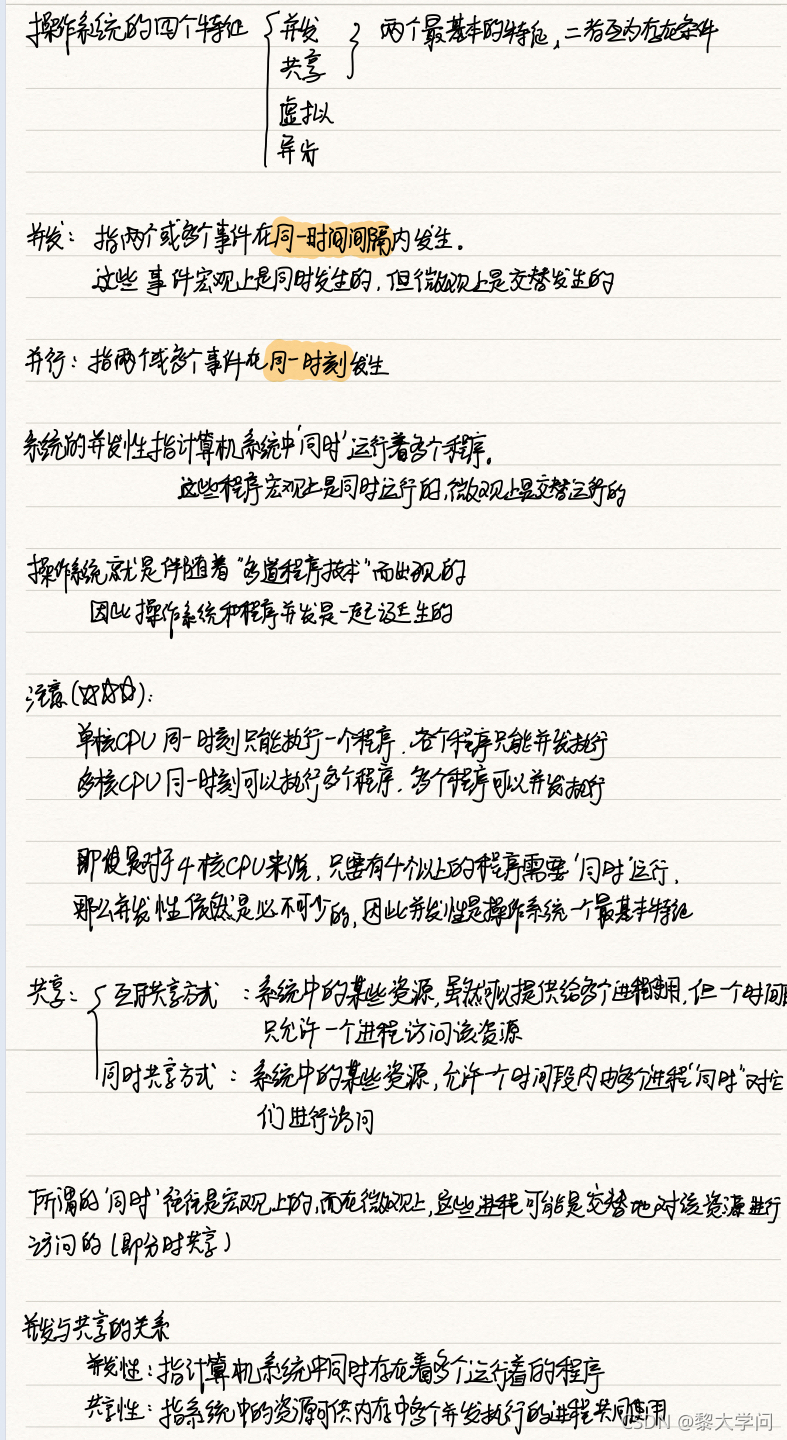 操作系统的四个特征 { 并发 } 两个最基本的特征,二者互为存在条件
共享
虚拟
异步
并发: 指两个或多个事件在同一时间间隔内发生.
这些事件宏观上是同时发生的,但微观上是交替发生的
并行: 指两个或多个事件在同一时刻发生
系统的并发性指计算机系统中'同时'运行着多个程序.
这些程序宏观上是同时运行的,微观上是交替运行的
操作系统就是伴随着"多道程序技术"而出现的
因此操作系统和程序并发是一起诞生的
注意(☆☆☆):
单核CPU 同一时刻只能执行一个程序.各个程序只能并发执行
多核CPU 同一时刻可以执行多个程序.多个程序可以并发执行
即使是对于4核CPU来说,只要有4个以上的程序需要'同时'运行,
那么并发性依然是必不可少的,因此并发性是操作系统一个最基本特征
共享: { 互斥共享方式 :系统中的某些资源,虽然可以提供给多个进程使用,但一个时间段
只允许一个进程访问该资源
同时共享方式 : 系统中的某些资源,允许一个时间段内由多个进程"同时"对它
们进行访问
所谓的'同时'往往是宏观上的,而在微观上,这些进程可能是交替地对该资源进行
访问的(即分时共享)
并发与共享的关系
并发性:指计算机系统中同时存在着多个运行着的程序
共享性:指系统中的资源可供内存中多个并发执行的进程共同使用
CSDN @黎大学问